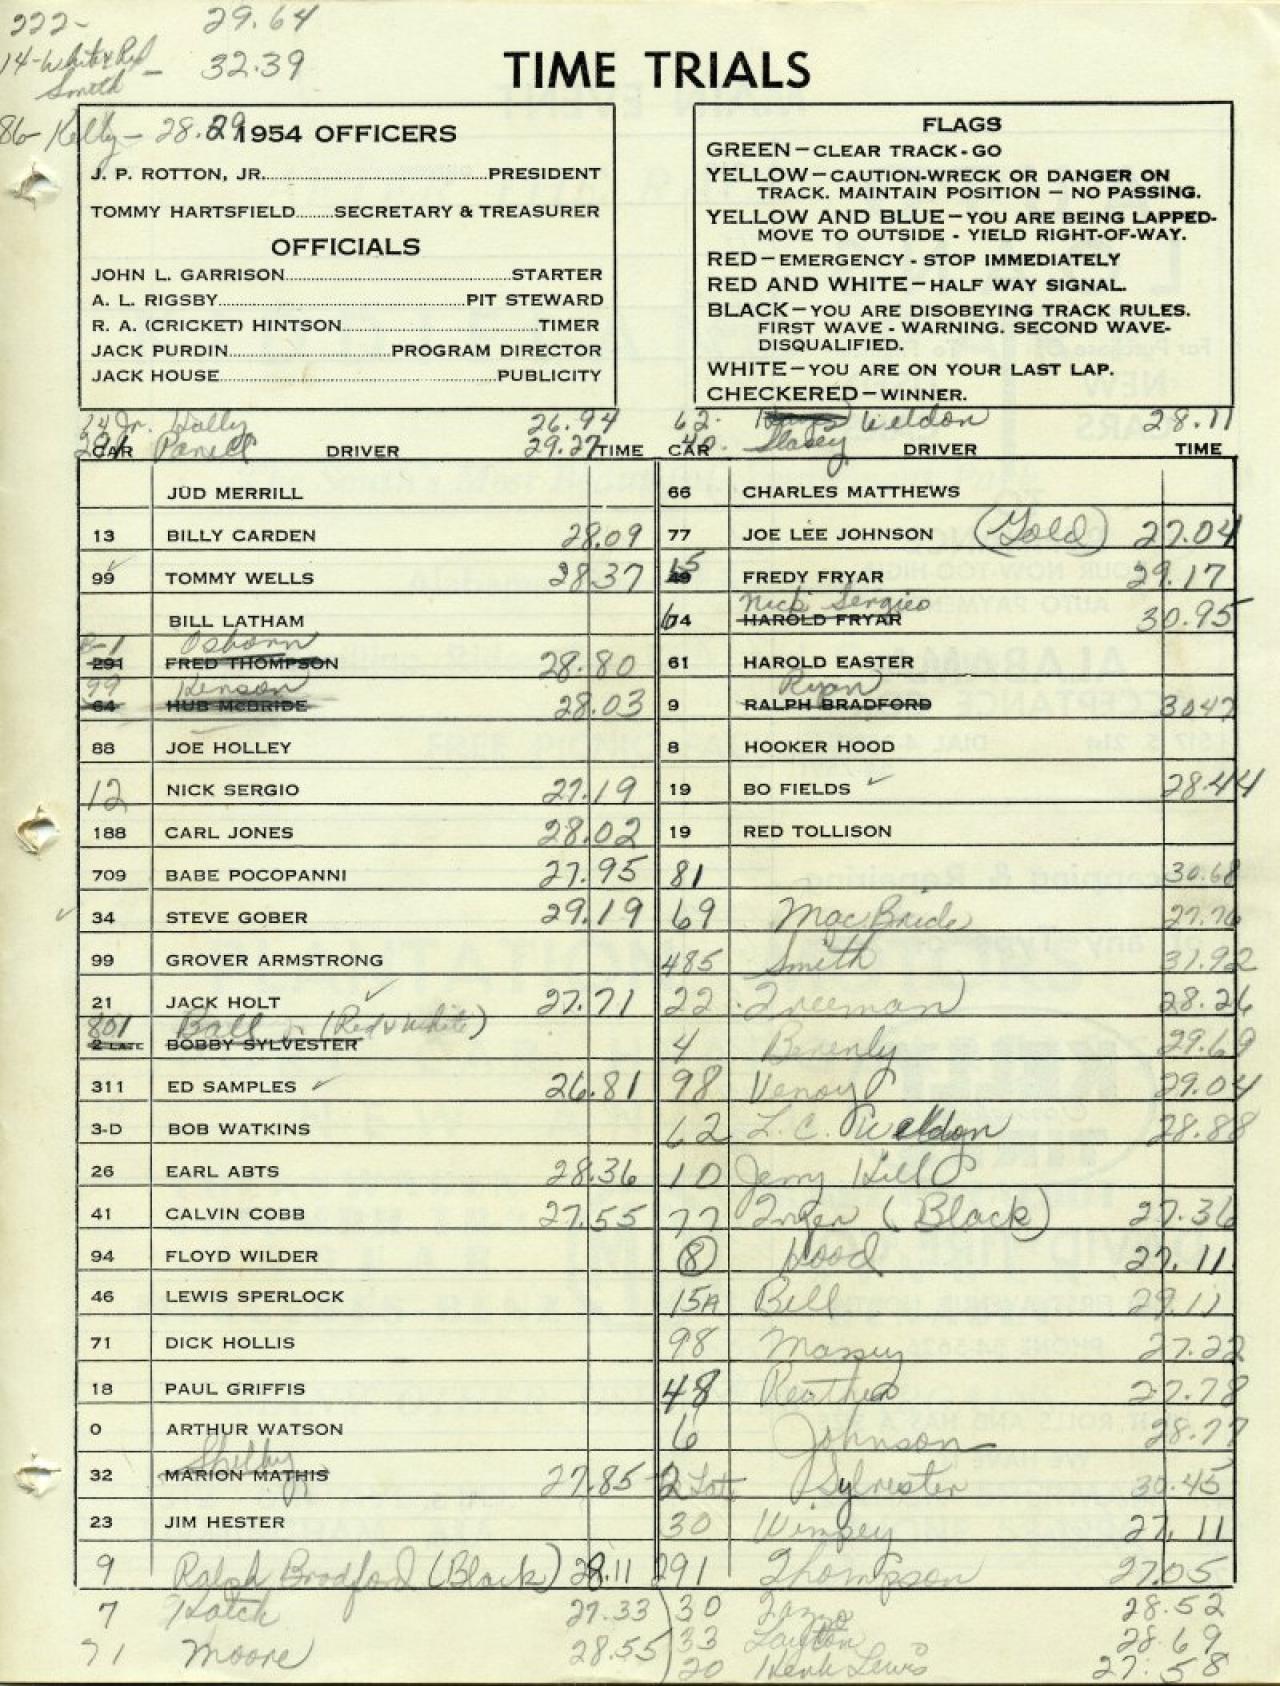 222- 29.64
14-White & Red Smith - 32.39
86- Kelly- 28.29
TIME TRIALS
1954 OFFICERS
J. P. ROTTON, JR. PRESIDENT
TOMMY HARTSFIELD SECRETARY & TREASURER
OFFICIALS
JOHN L. GARRISON STARTER
A. L. RIGSBY PIT STEWARD
R. A. (CRICKET) HINTSON TIMER
JACK PURDIN PROGRAM DIRECTOR
JACK HOUSE PUBLICITY
FLAGS
GREEN—CLEAR TRACK - GO
YELLOW—CAUTION-WRECK OR DANGER ON
TRACK. MAINTAIN POSITION — NO PASSING.
YELLOW AND BLUE—YOU ARE BEING LAPPED-
MOVE TO OUTSIDE - YIELD RIGHT-OF-WAY.
RED—EMERGENCY - STOP IMMEDIATELY
RED AND WHITE—HALF WAY SIGNAL.
BLACK—YOU ARE DISOBEYING TRACK RULES.
FIRST WAVE - WARNING. SECOND WAVE-
DISQUALIFIED.
WHITE—YOU ARE ON YOUR LAST LAP.
CHECKERED—WINNER.
Jr. Holly 26.94
29.27
CAR DRIVER TIME
JUD MERRILL
13 BILLY CARDEN 28.09
99 TOMMY WELLS 28.37
BILL LATHAM
B-1 Osborn
291 FRED THOMPSON 28.80
99 Henson
64 HUB McBRIDE 28.03
88 JOE HOLLEY
12 NICK SERGIO 27.19
188 CARL JONES 28.02
709 BABE POCOPANNI 27.95
34 STEVE GOBER 29.19
99 GROVER ARMSTRONG
21 JACK HOLT 27.71
801 Ball (Red & White)
2 LATE BOBBY SYLVESTER
311 ED SAMPLES 26.81
3-D BOB WATKINS
26 EARL ABTS 28.36
41 CALVIN COBB 27.55
94 FLOYD WILDER
46 LEWIS SPERLOCK
71 DICK HOLLIS
18 PAUL GRIFFIS
0 ARTHUR WATSON
Shelby
32 MARION MATHIS 27.85
23 JIM HESTER
9 Ralph Bradford (Black) 28.11
7 Hatch 27.33
71 Moore 28.55
62- Weldon 28.11
40. Stacey
CAR DRIVER TIME
66 CHARLES MATTHEWS
77 JOE LEE JOHNSON (Gold) 27.04
15
49 FREDY FRYAR 29.17
Nick Sergico
HAROLD FRYAR 30.95
61 HAROLD EASTER
Ryan
9 RALPH BRADFORD 30.47
8 HOOKER HOOD
19 BO FIELDS 28.44
19 RED TOLLISON
81 30.68
69 MacBride 27.76
485 Smith 31.92
22 Freeman 28.26
4 29.69
98 29.04
62 L. C. Weldon 28.88
10 Jerry Hill
77 (Black) 27.36
8 Hood 27.11
15A Bell 29.11
98 Massey 27.22
48 27.78
6 Johnson 28.77
2 Late Sylvester 30.45
30 Wimpey 27.11
291 Thompson 27.05
30 28.52
33 Layton 28.69
20 Hank Lewis 27.58